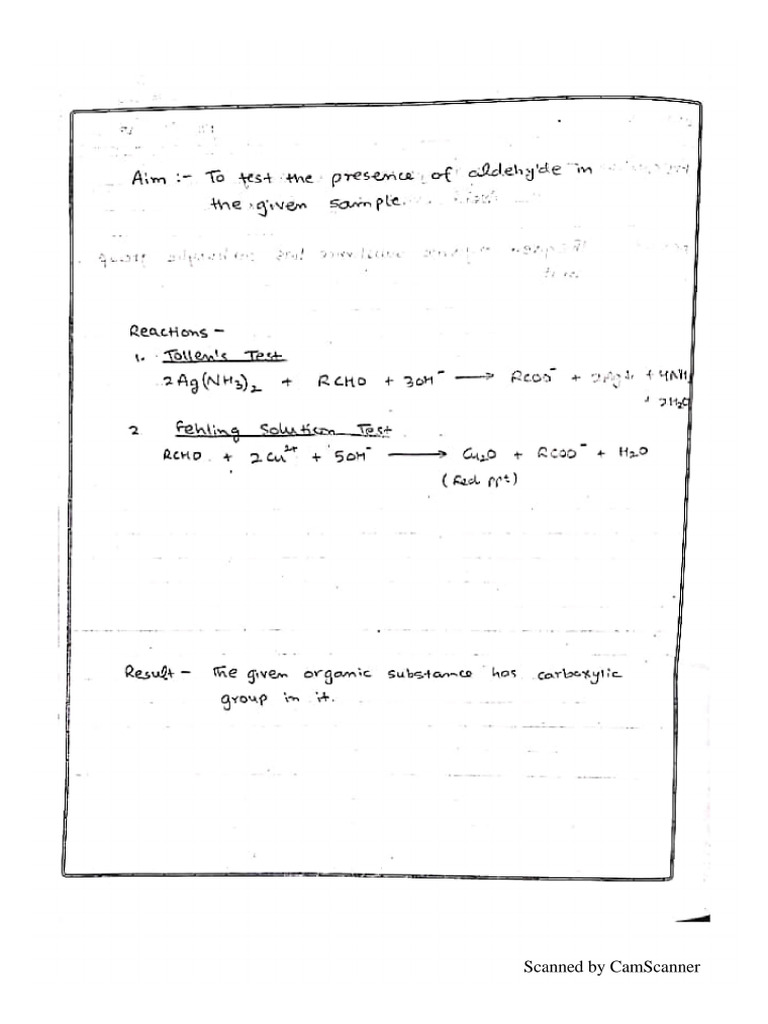 Aim :- To test the presence of aldehyde in
the given sample.
Reactions -
1. Tollen's Test
2Ag(NH3)2 + RCHO + 3OH⁻ → RCOO⁻ + 2Ag↓ + 4NH3
+ 2H2O
2 Fehling Solution Test
RCHO + 2Cu²⁺ + 5OH⁻ → Cu2O + RCOO⁻ + H2O
(Red ppt)
Result - The given organic substance has carboxylic
group in it.
Scanned by CamScanner